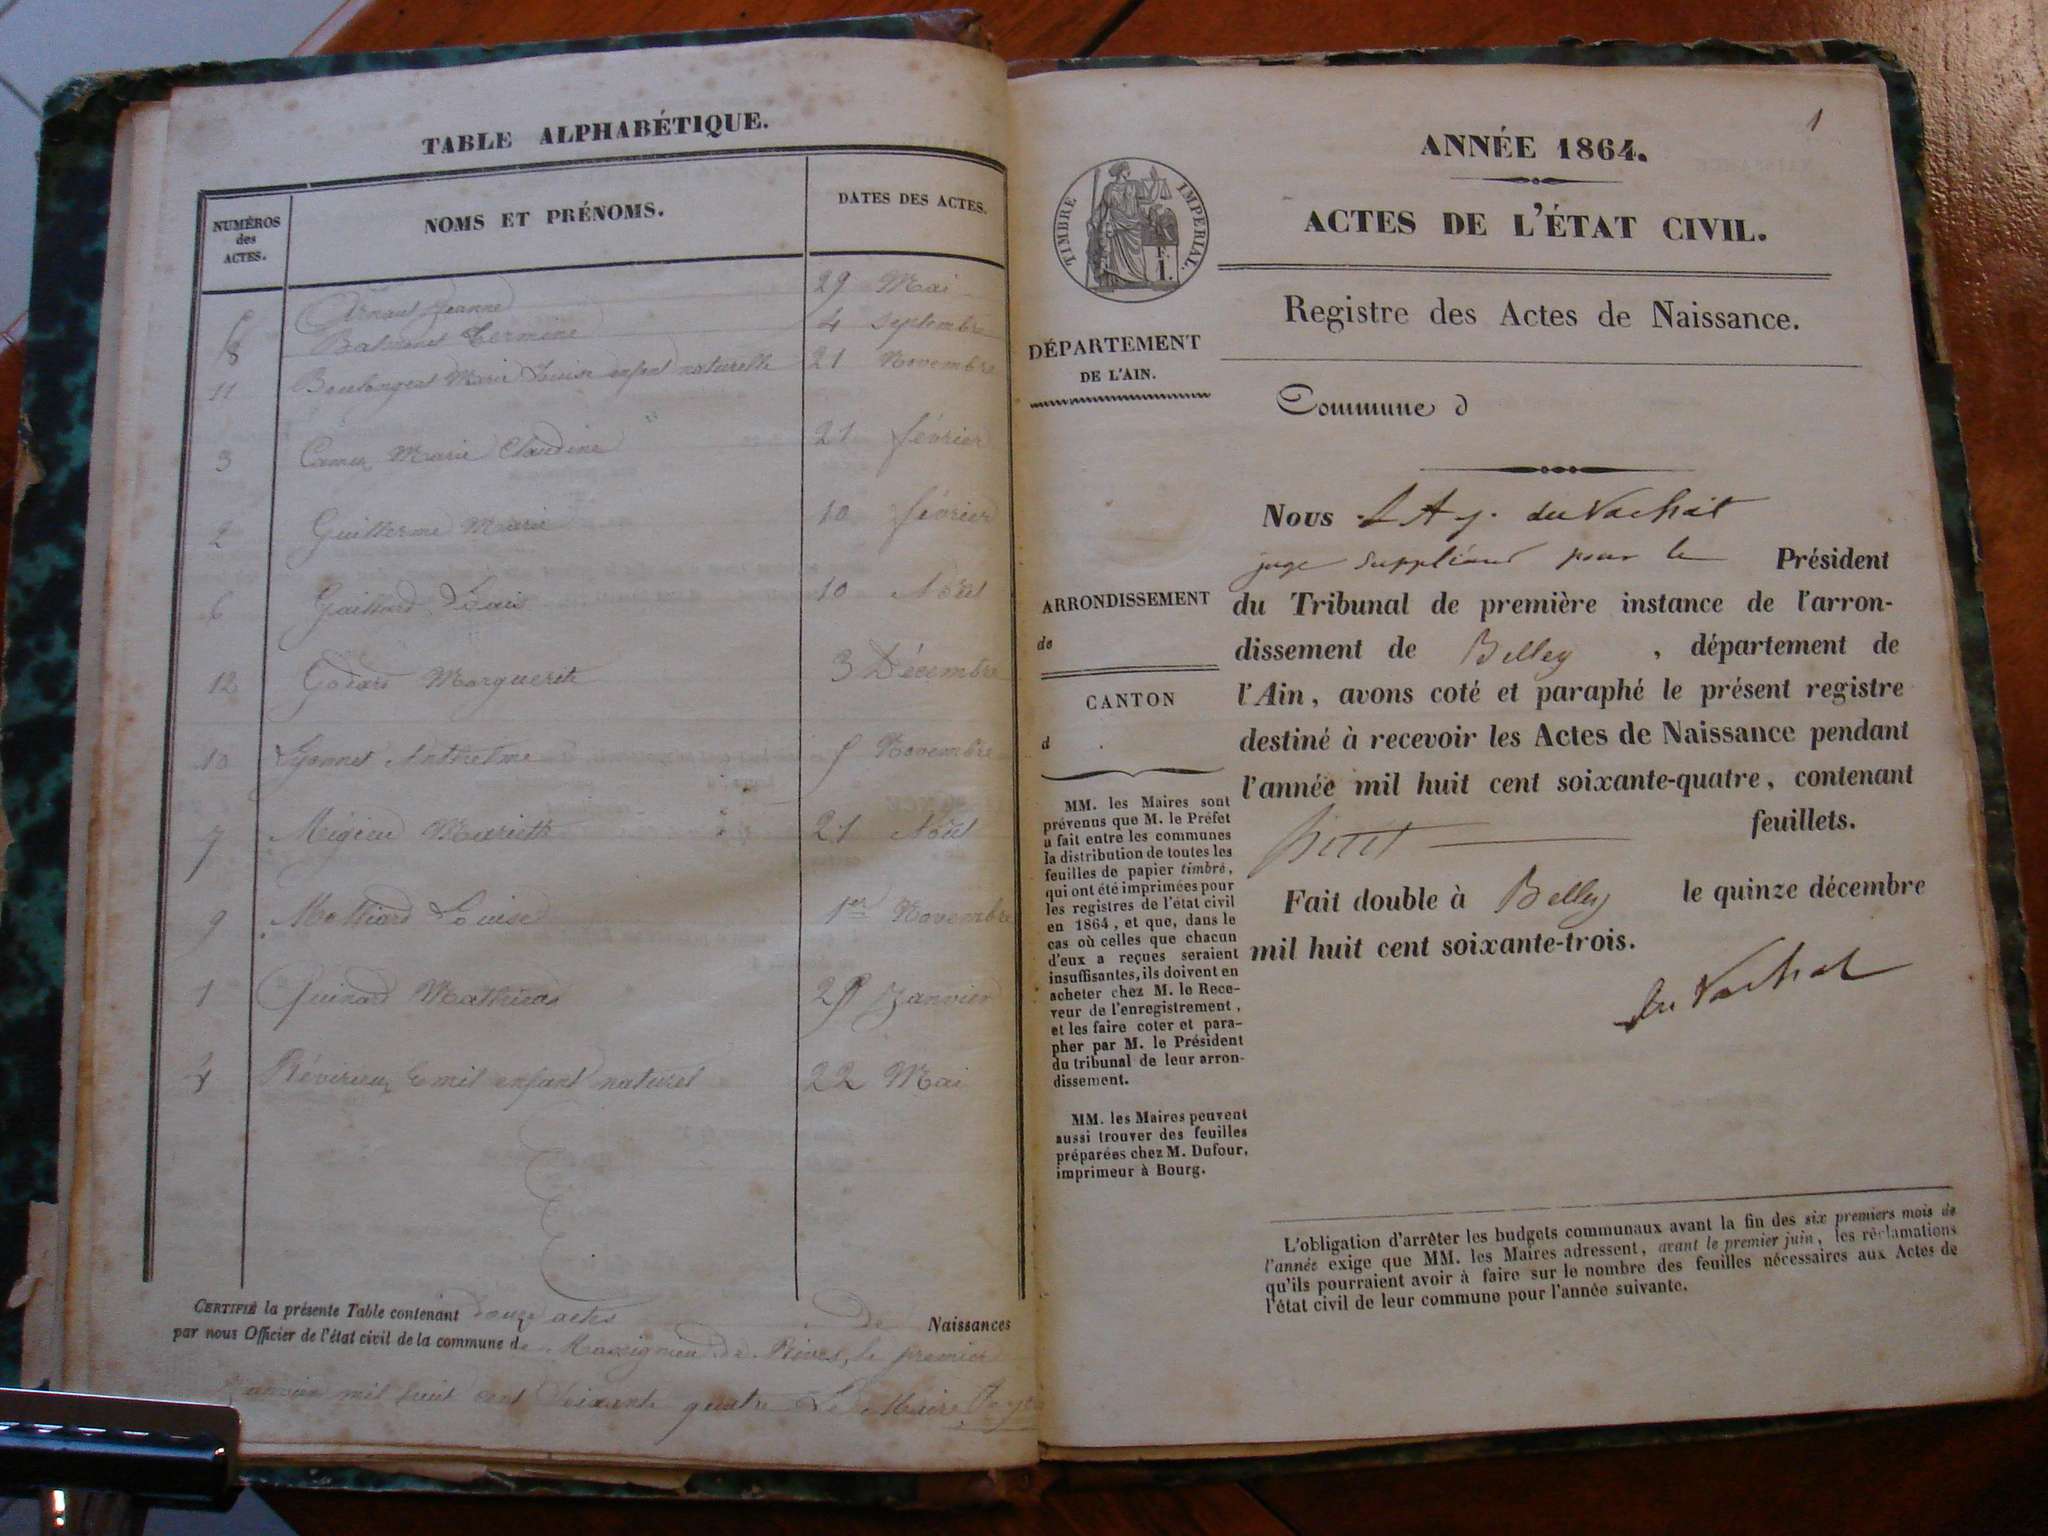 TABLE ALPHABÉTIQUE.
NUMÉROS des ACTES.
NOMS ET PRÉNOMS.
DATES DES ACTES.
Arnaut Jeanne 29 Mai
8 4 Septembre
11 Marie Louise enfant naturelle 21 Novembre
3 Marie Claudine 21 février
2 Guillerme Marie 10 février
6 Gaillard 10 Aout
12 Godard Marguerite 3 Décembre
10 Gonnet Anthelme Novembre
7 Mariette 21 Aout
9 Louise 1er Novembre
1 Quinard Janvier
4 Emil enfant naturel 22 Mai
CERTIFIÉ la présente Table contenant douze actes de Naissances
par nous Officier de l'état civil de la commune de Massignieu de Rives, le premier
Janvier mil huit cent soixante quatre Le Maire
1
ANNÉE 1864.
ACTES DE L'ÉTAT CIVIL.
TIMBRE IMPERIAL.
F. 1.
Registre des Actes de Naissance.
DÉPARTEMENT
DE L'AIN.
Commune d
ARRONDISSEMENT
de
CANTON
d
MM. les Maires sont
prévenus que M. le Préfet
a fait entre les communes
la distribution de toutes les
feuilles de papier timbré,
qui ont été imprimées pour
les registres de l'état civil
en 1864, et que, dans le
cas où celles que chacun
d'eux a reçues seraient
insuffisantes, ils doivent en
acheter chez M. le Rece-
veur de l'enregistrement,
et les faire coter et para-
pher par M. le Président
du tribunal de leur arron-
dissement.
MM. les Maires peuvent
aussi trouver des feuilles
préparées chez M. Dufour,
imprimeur à Bourg.
Nous du Vachat
juge suppléant pour le Président
du Tribunal de première instance de l'arron-
dissement de Belley, département de
l'Ain, avons coté et paraphé le présent registre
destiné à recevoir les Actes de Naissance pendant
l'année mil huit cent soixante-quatre, contenant
feuillets.
Fait double à Belley le quinze décembre
mil huit cent soixante-trois.
du Vachat
L'obligation d'arrêter les budgets communaux avant la fin des six premiers mois de
l'année exige que MM. les Maires adressent, avant le premier juin, les réclamations
qu'ils pourraient avoir à faire sur le nombre des feuilles nécessaires aux Actes de
l'état civil de leur commune pour l'année suivante.